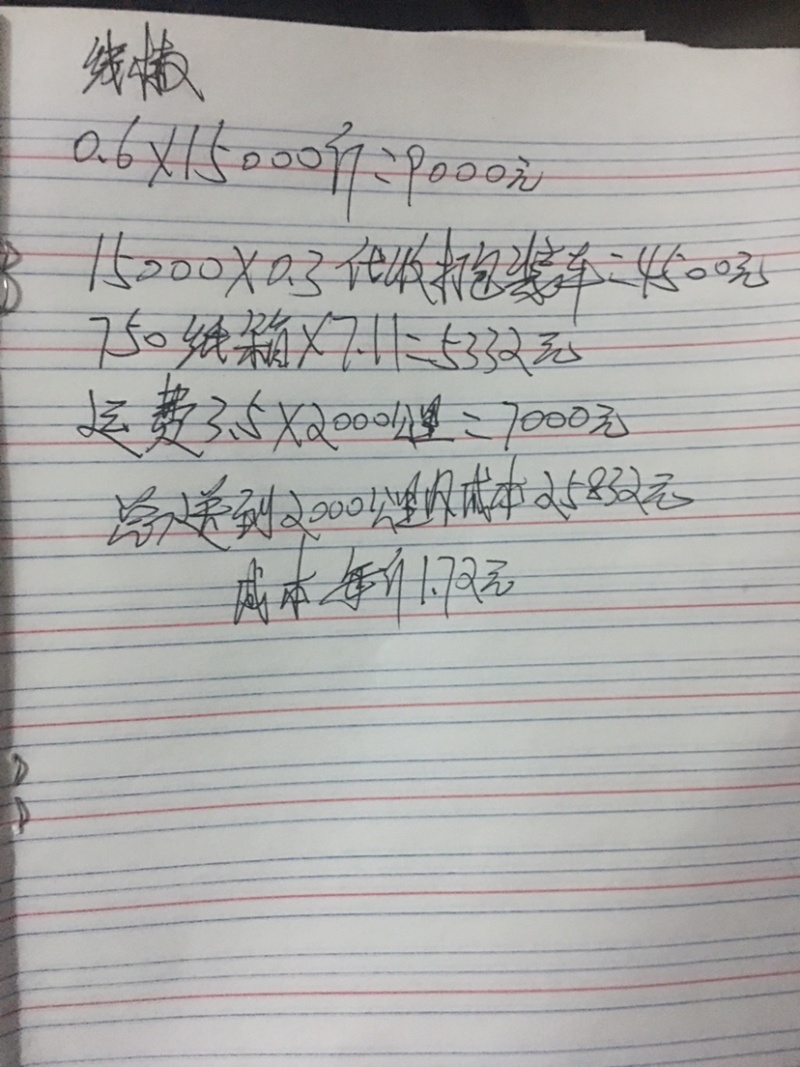 线椒
0.6×15000斤=9000元
15000×0.3代收打包装车=4500元
750纸箱×7.11=5332元
运费3.5×2000公里=7000元
总送到2000公里内成本25832元
成本每斤1.72元